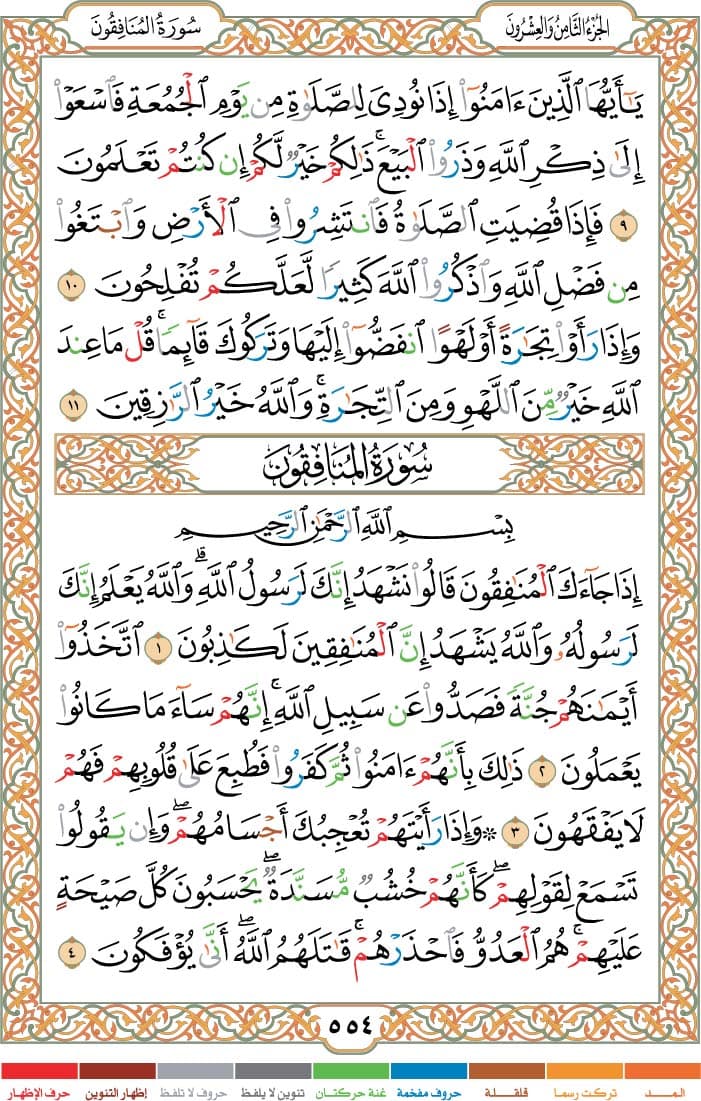 الجُزْءُ الثَّامِنُ وَالعِشْرُونَ
سُورَةُ المُنَافِقُونَ
يَٰٓأَيُّهَا ٱلَّذِينَ ءَامَنُوٓا۟ إِذَا نُودِىَ لِلصَّلَوٰةِ مِن يَوْمِ ٱلْجُمُعَةِ فَٱسْعَوْا۟
إِلَىٰ ذِكْرِ ٱللَّهِ وَذَرُوا۟ ٱلْبَيْعَ ۚ ذَٰلِكُمْ خَيْرٌ لَّكُمْ إِن كُنتُمْ تَعْلَمُونَ
٩ فَإِذَا قُضِيَتِ ٱلصَّلَوٰةُ فَٱنتَشِرُوا۟ فِى ٱلْأَرْضِ وَٱبْتَغُوا۟
مِن فَضْلِ ٱللَّهِ وَٱذْكُرُوا۟ ٱللَّهَ كَثِيرًا لَّعَلَّكُمْ تُفْلِحُونَ ١٠
وَإِذَا رَأَوْا۟ تِجَٰرَةً أَوْ لَهْوًا ٱنفَضُّوٓا۟ إِلَيْهَا وَتَرَكُوكَ قَآئِمًا ۚ قُلْ مَا عِندَ
ٱللَّهِ خَيْرٌ مِّنَ ٱللَّهْوِ وَمِنَ ٱلتِّجَٰرَةِ ۚ وَٱللَّهُ خَيْرُ ٱلرَّٰزِقِينَ ١١
سُورَةُ المُنَافِقُونَ
بِسْمِ ٱللَّهِ ٱلرَّحْمَٰنِ ٱلرَّحِيمِ
إِذَا جَآءَكَ ٱلْمُنَٰفِقُونَ قَالُوا۟ نَشْهَدُ إِنَّكَ لَرَسُولُ ٱللَّهِ ۗ وَٱللَّهُ يَعْلَمُ إِنَّكَ
لَرَسُولُهُۥ وَٱللَّهُ يَشْهَدُ إِنَّ ٱلْمُنَٰفِقِينَ لَكَٰذِبُونَ ١ ٱتَّخَذُوٓا۟
أَيْمَٰنَهُمْ جُنَّةً فَصَدُّوا۟ عَن سَبِيلِ ٱللَّهِ ۚ إِنَّهُمْ سَآءَ مَا كَانُوا۟
يَعْمَلُونَ ٢ ذَٰلِكَ بِأَنَّهُمْ ءَامَنُوا۟ ثُمَّ كَفَرُوا۟ فَطُبِعَ عَلَىٰ قُلُوبِهِمْ فَهُمْ
لَا يَفْقَهُونَ ٣ ۞ وَإِذَا رَأَيْتَهُمْ تُعْجِبُكَ أَجْسَامُهُمْ ۖ وَإِن يَقُولُوا۟
تَسْمَعْ لِقَوْلِهِمْ ۖ كَأَنَّهُمْ خُشُبٌ مُّسَنَّدَةٌ ۖ يَحْسَبُونَ كُلَّ صَيْحَةٍ
عَلَيْهِمْ ۚ هُمُ ٱلْعَدُوُّ فَٱحْذَرْهُمْ ۚ قَٰتَلَهُمُ ٱللَّهُ ۖ أَنَّىٰ يُؤْفَكُونَ ٤
٥٥٤
المـــد تركت رسما قلقـــلة حروف مفخمة غنة حركتان تنوين لا يلفظ حروف لا تلفظ إظهار التنوين حرف الإظهار